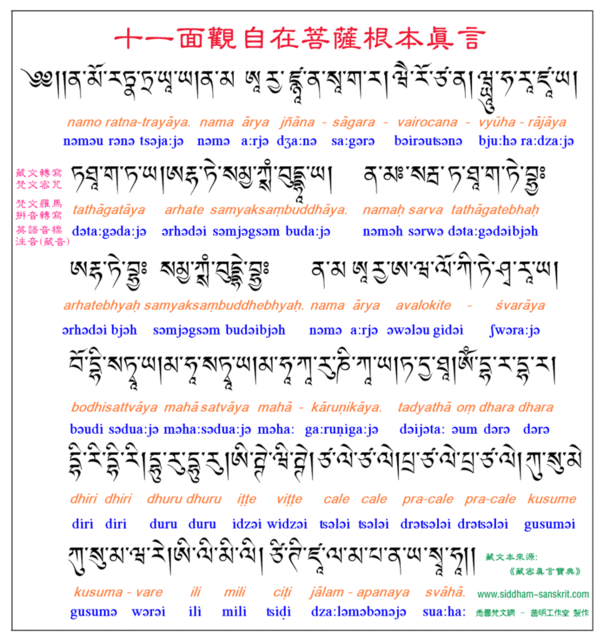 十一面觀自在菩薩根本眞言
༄༅།།ན་མོ་རཏྣ་ཏྲ་ཡཱ་ཡ།ན་མ ཨཱ་རྱ་ཛྙཱ་ན་སཱ་ག་ར། ཝཻ་རོ་ཙ་ན། བྱཱུ་ཧ་རཱ་ཛཱ་ཡ།
namo ratna-trayāya. nama ārya jñāna - sāgara - vairocana - vyūha - rājāya
nəməu rənə tsəja:jə nəmə a:rjə dʒa:nə sa:gərə bəirəutsənə bju:hə ra:dza:jə
藏文轉寫
梵文密咒
ཏ་ཐཱ་ག་ཏཱ་ཡ།ཨརྷ་ཏེ་སམྱ་ཀྶཾ་བུདྡྷཱ་ཡ། ན་མཿ་སརྦ་ཏ་ཐཱ་ག་ཏེ་བྷྱཿ
梵文羅馬
拼音轉寫
tathāgatāya arhate samyaksaṃbuddhāya. namaḥ sarva tathāgatebhaḥ
英語音標
注音(藏音)
dəta:gəda:jə ərhədəi səmjəgsəm buda:jə nəməh sərwə dəta:gədəibjəh
ཨརྷ་ཏེ་བྷྱཿ སམྱ་ཀྶཾ་བུདྡྷེ་བྷྱཿ ན་མ ཨཱ་རྱ་ཨ་ཝ་ལོ་ཀི་ཏེ་ཤྭ་རཱ་ཡ།
arhatebhyaḥ samyaksaṃbuddhebhyaḥ. nama ārya avalokite - śvarāya
ərhədəi bjəh səmjəgsəm budəibjəh nəmə a:rjə əwələu gidəi ʃwəra:jə
བོ་དྷི་སཏྭཱ་ཡ།མ་ཧཱ་སཏྭཱ་ཡ།མ་ཧཱ་ཀཱ་རུ་ཎི་ཀཱ་ཡ།ཏ་དྱ་ཐཱ།ཨོཾ་དྷ་ར་དྷ་ར།
bodhisattvāya mahā satvāya mahā - kāruṇikāya. tadyathā oṃ dhara dhara
bəudi sədua:jə məha:sədua:jə məha: ga:ruṇiga:jə dəijəta: əum dərə dərə
དྷི་རི་དྷི་རི།དྷུ་རུ་དྷུ་རུ།ཨི་ཊྚེ་ཝི་ཊྚེ།ཙ་ལེ་ཙ་ལེ།པྲ་ཙ་ལེ་པྲ་ཙ་ལེ།ཀུ་སུ་མེ
dhiri dhiri dhuru dhuru iṭṭe viṭṭe cale cale pra-cale pra-cale kusume
diri diri duru duru idzəi widzəi tsələi tsələi drətsələi drətsələi gusuməi
ཀུ་སུ་མ་ཝ་རེ།ཨི་ལི་མི་ལི། ཙི་ཊི་ཛཱ་ལ་མ་པ་ན་ཡ་སྭཱ་ཧཱ།།
藏文本來源:
《藏密眞言寶典》
kusuma - vare ili mili ciṭi jālam - apanaya svāhā.
www.siddham-sanskrit.com
gusumə wərəi ili mili tsiḍi dza:ləməbənəjə sua:ha:
悉曇梵文網 - 蓝明工作室 製作